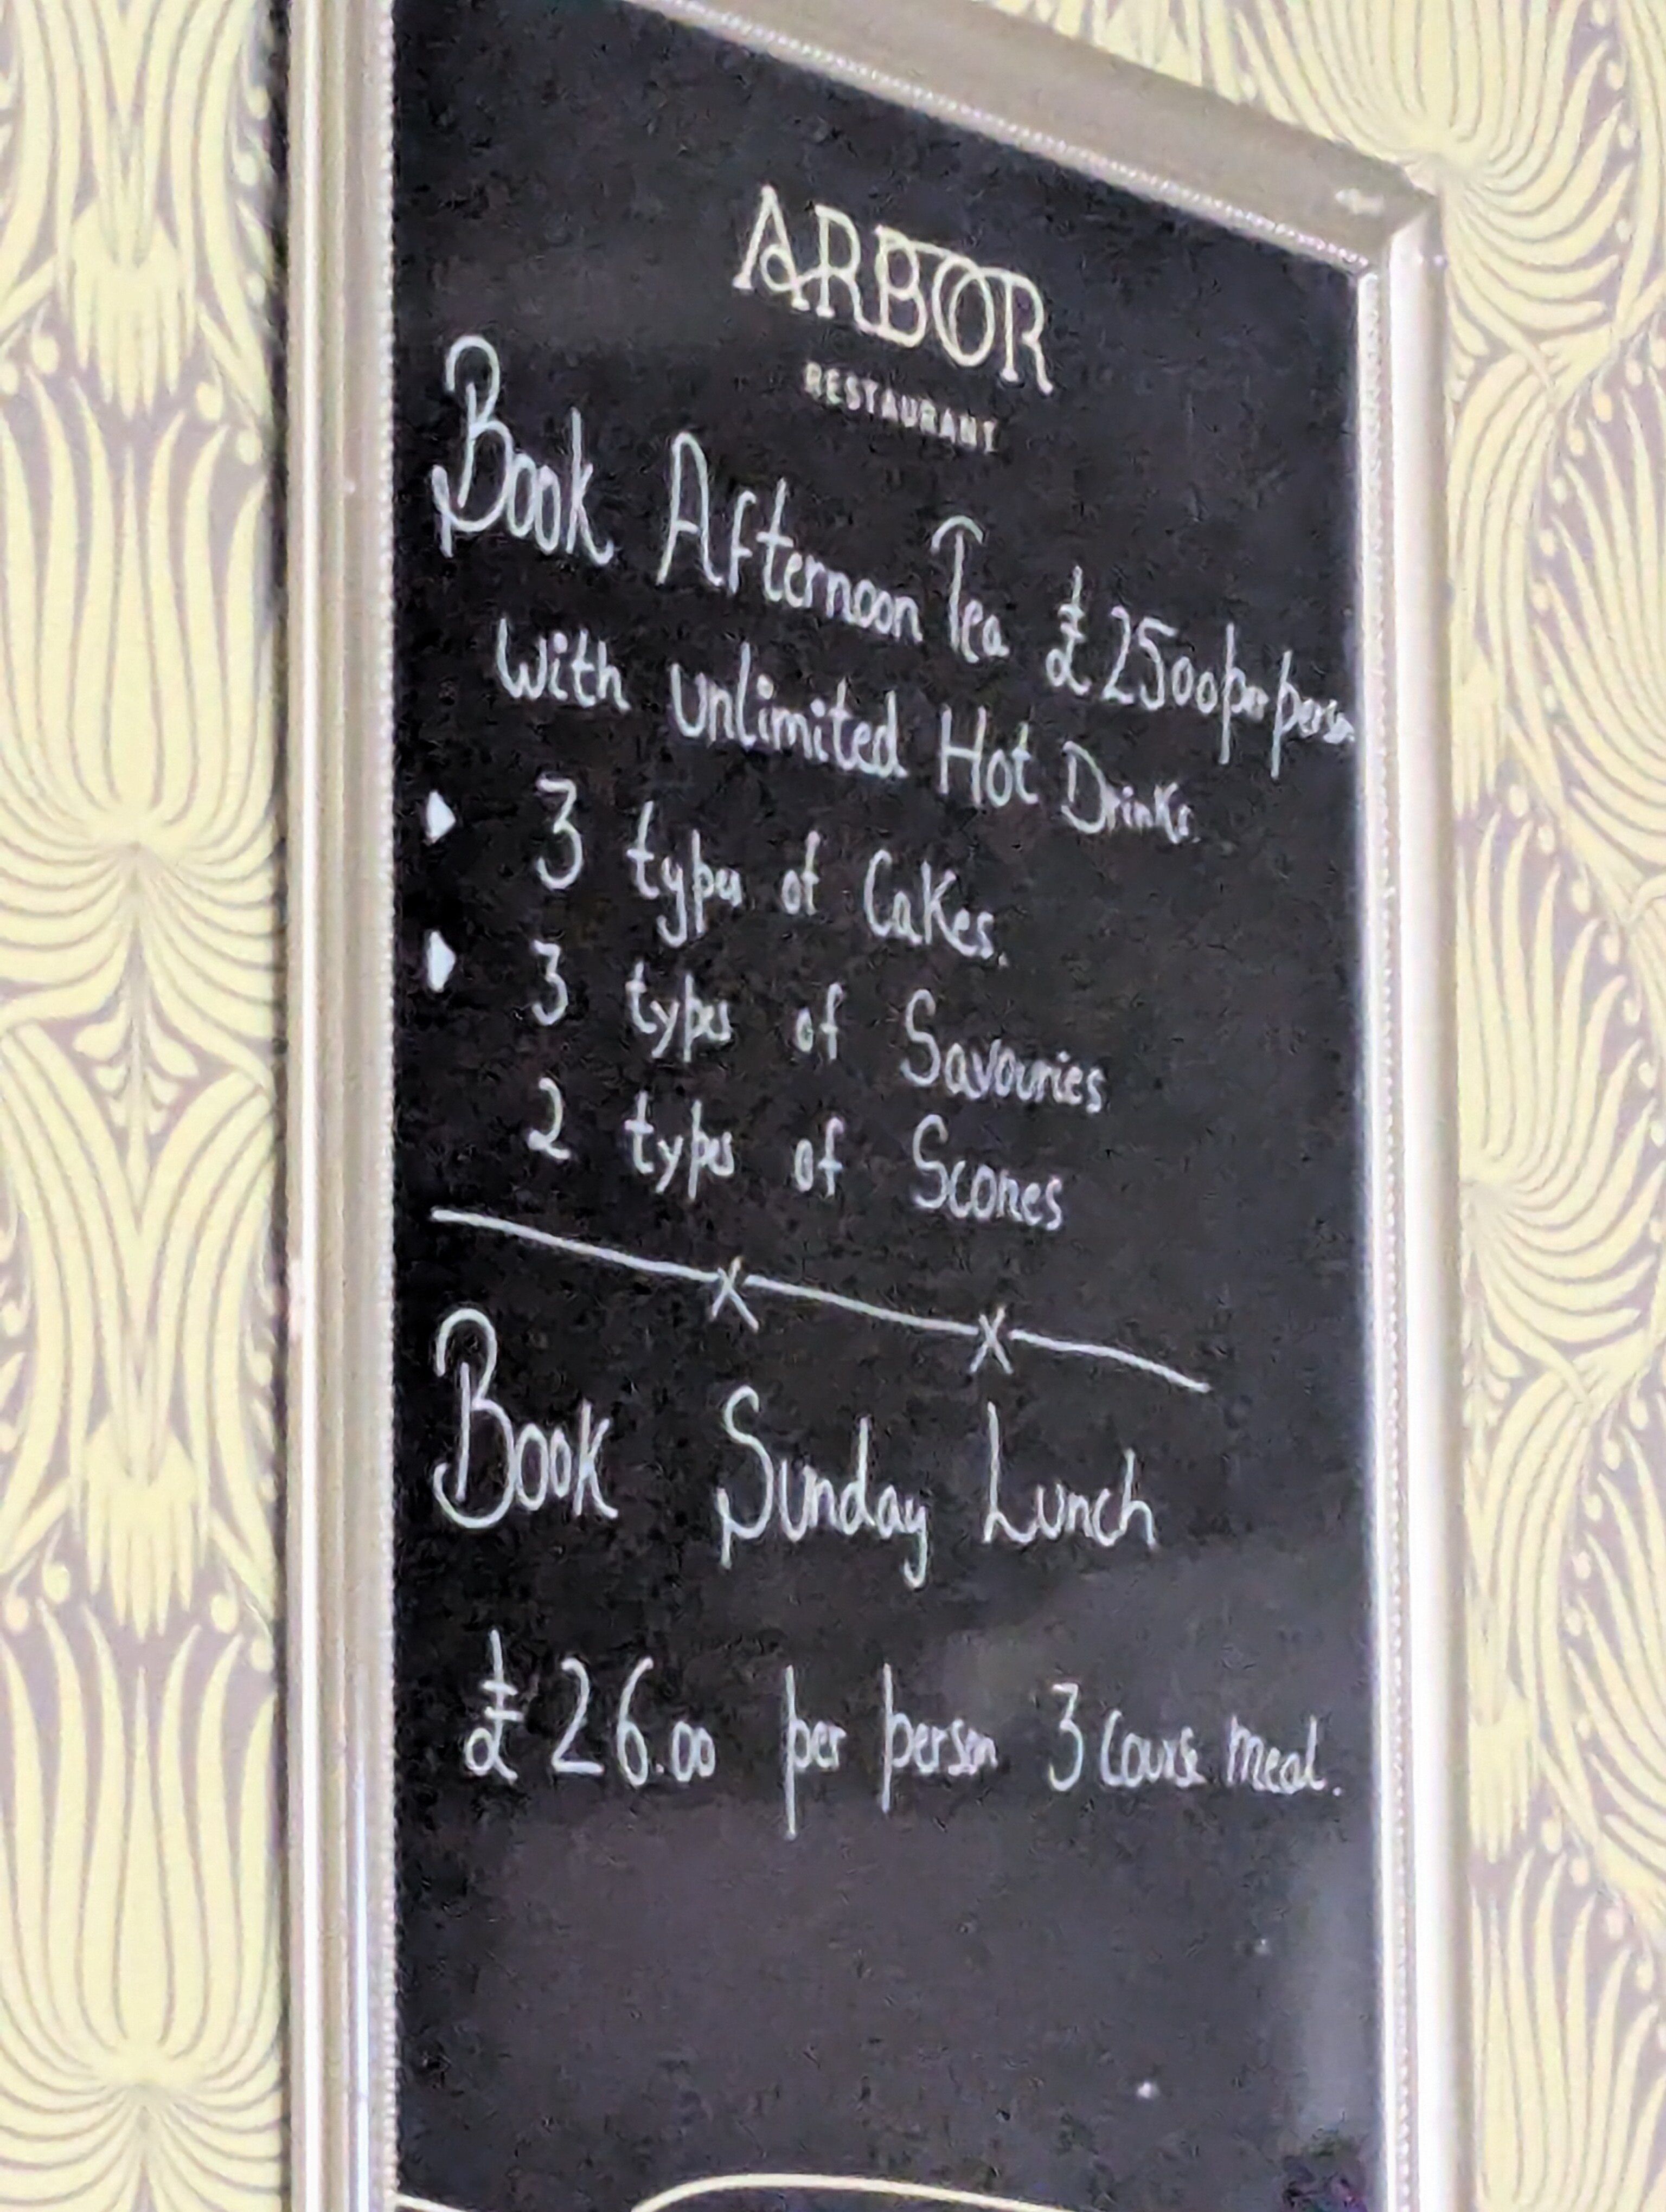 ARBOR
RESTAURANT
Book Afternoon Tea £2500 per person
With unlimited Hot Drinks.
3 types of Cakes.
3 types of Savouries
2 types of Scones
Book Sunday Lunch
£26.00 per person 3 Course meal.